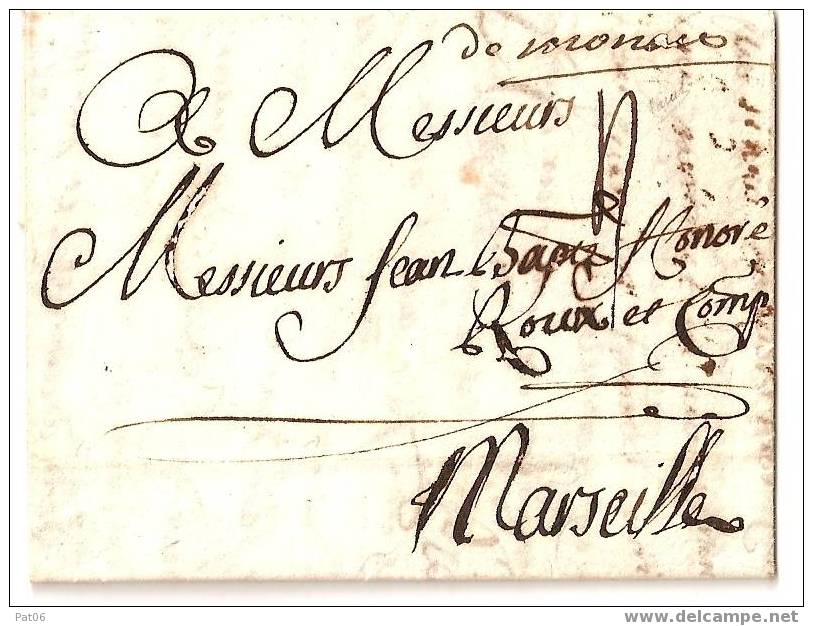 de monaco
A Messieurs
Messieurs Jean Bapte Honoré
Roux et Comp
Marseille
Pat06
www.delcampe.net